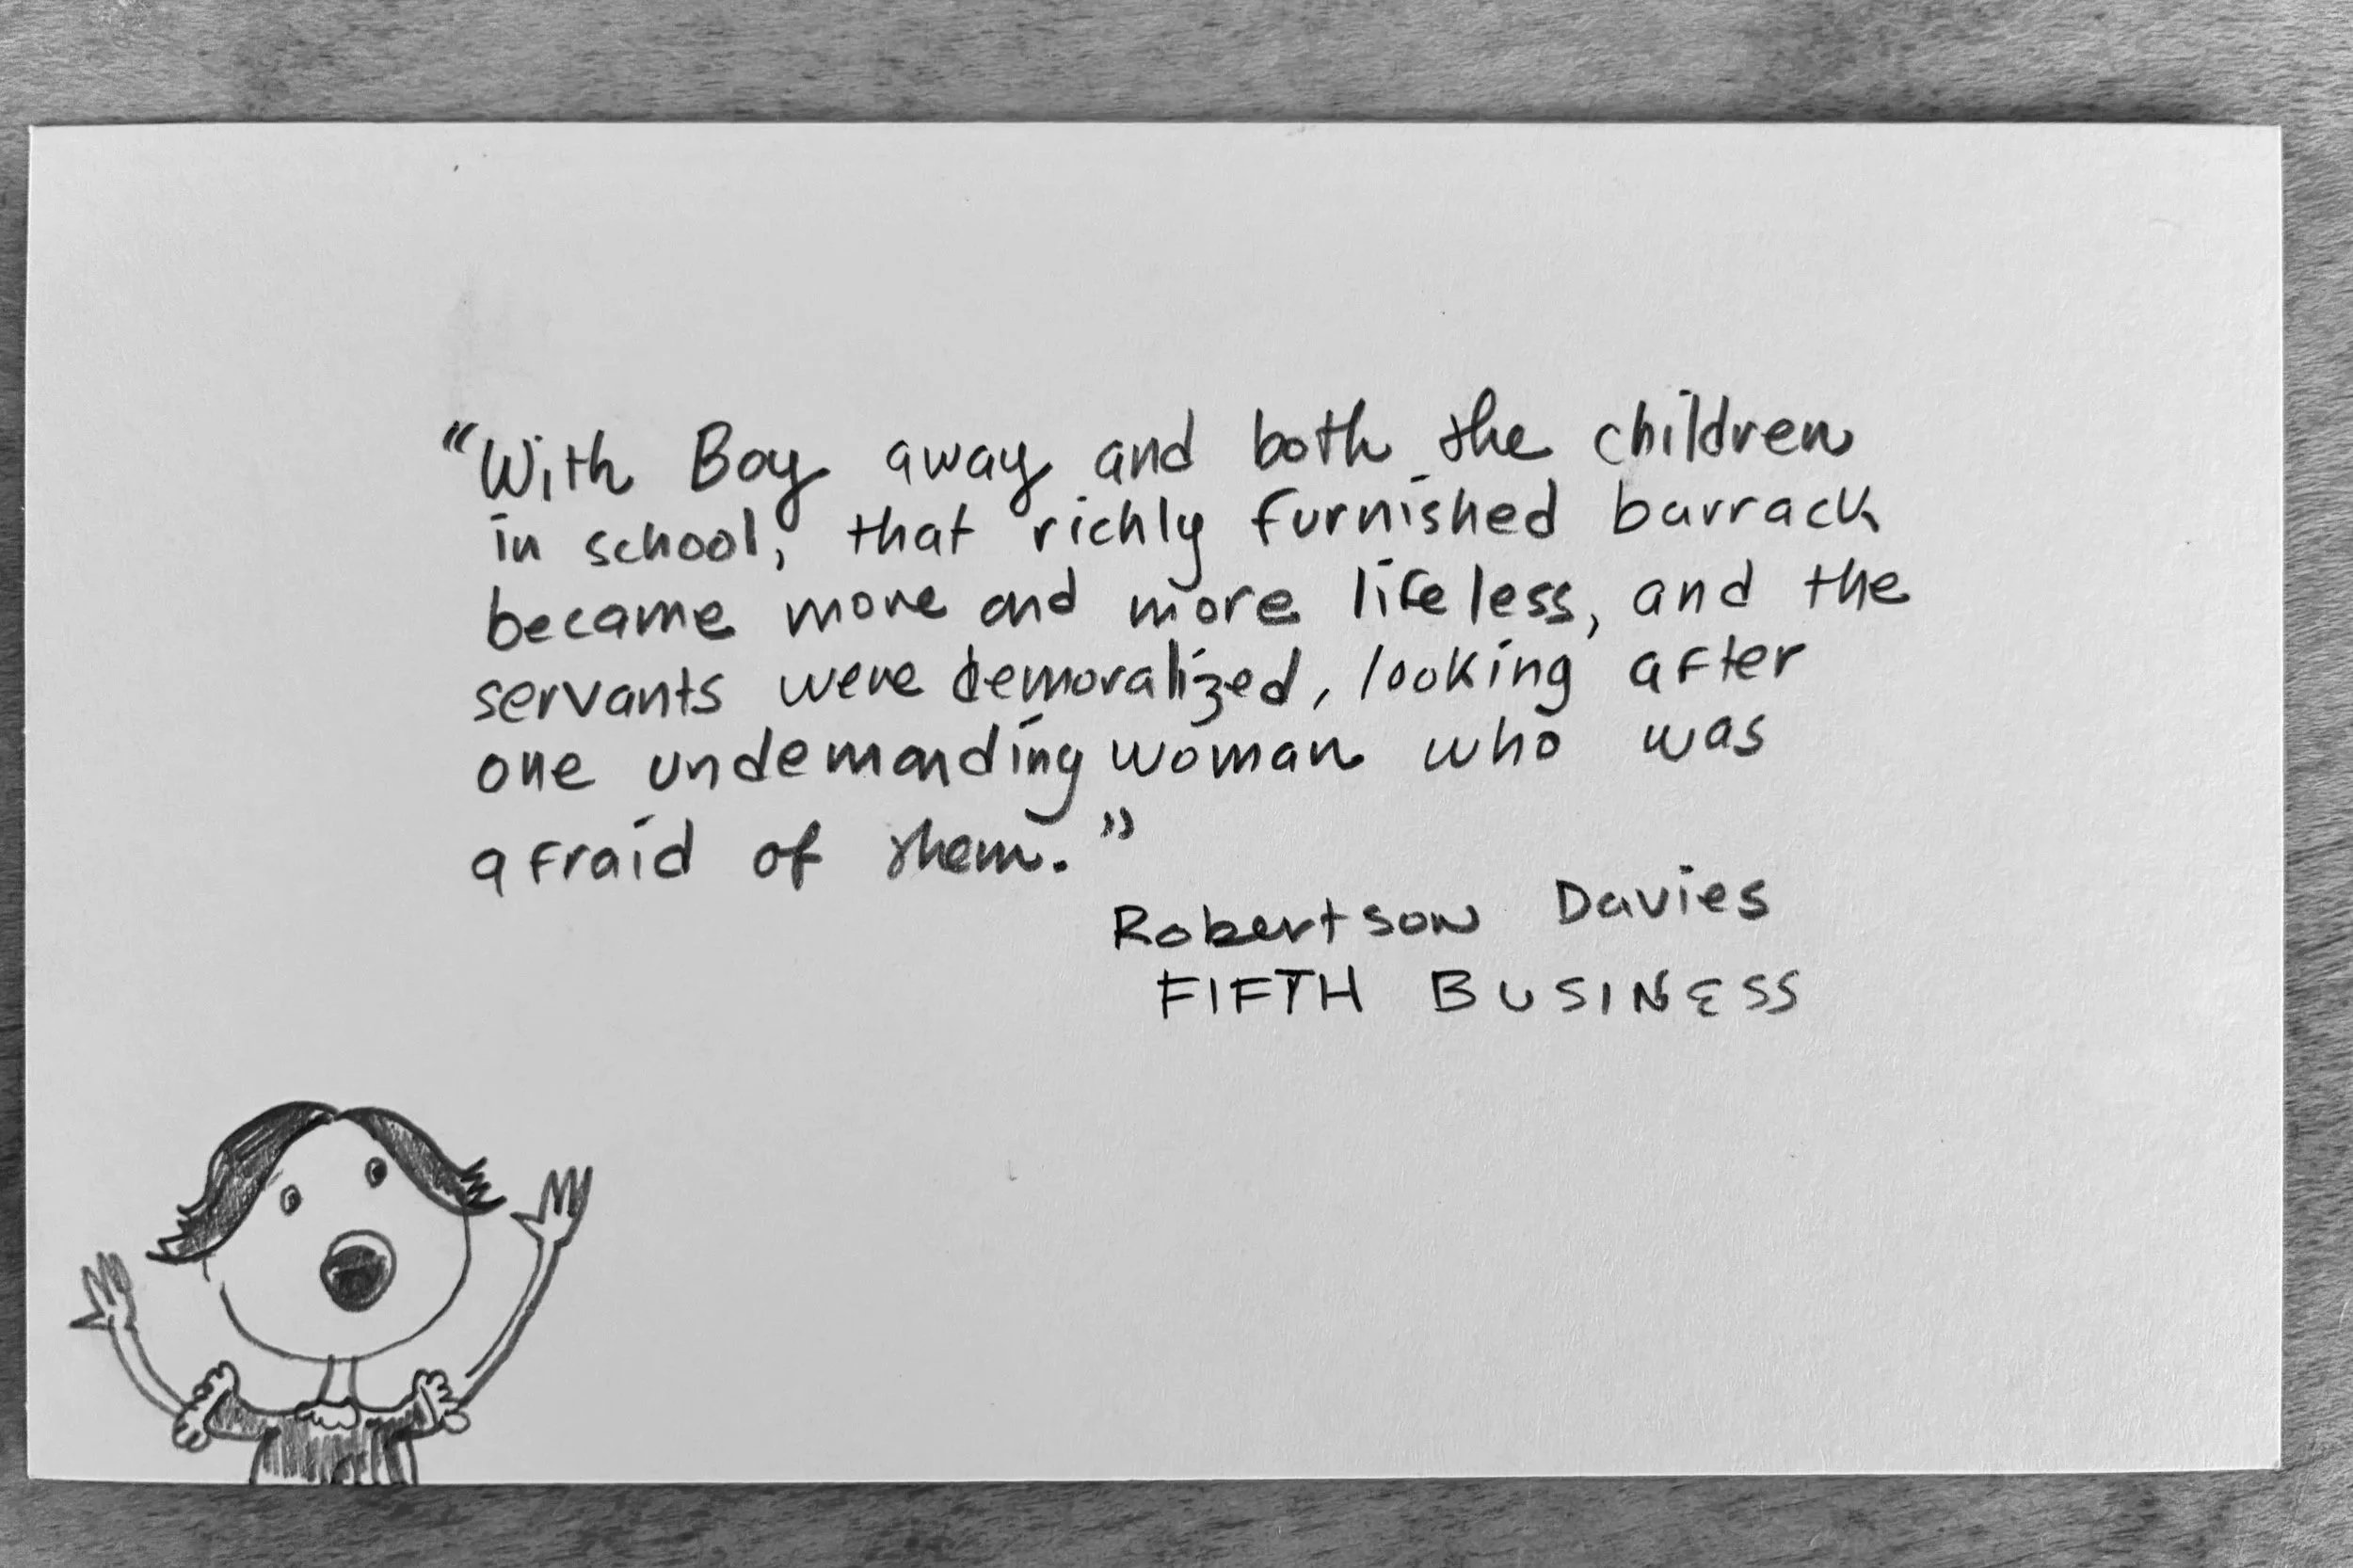 “With Boy away and both the children
in school, that richly furnished barrack
became more and more lifeless, and the
servants were demoralized, looking after
one undemanding woman who was
afraid of them.”
Robertson Davies
FIFTH BUSINESS